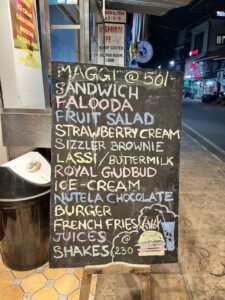 MAGGI @ 50/-
SANDWICH
FALOODA
FRUIT SALAD
STRAWBERRY CREAM
SIZZLER BROWNIE
LASSI/BUTTERMILK
ROYAL GUDBUD
ICE-CREAM
NUTELA CHOCOLATE
BURGER
FRENCH FRIES
JUICES
SHAKES/230